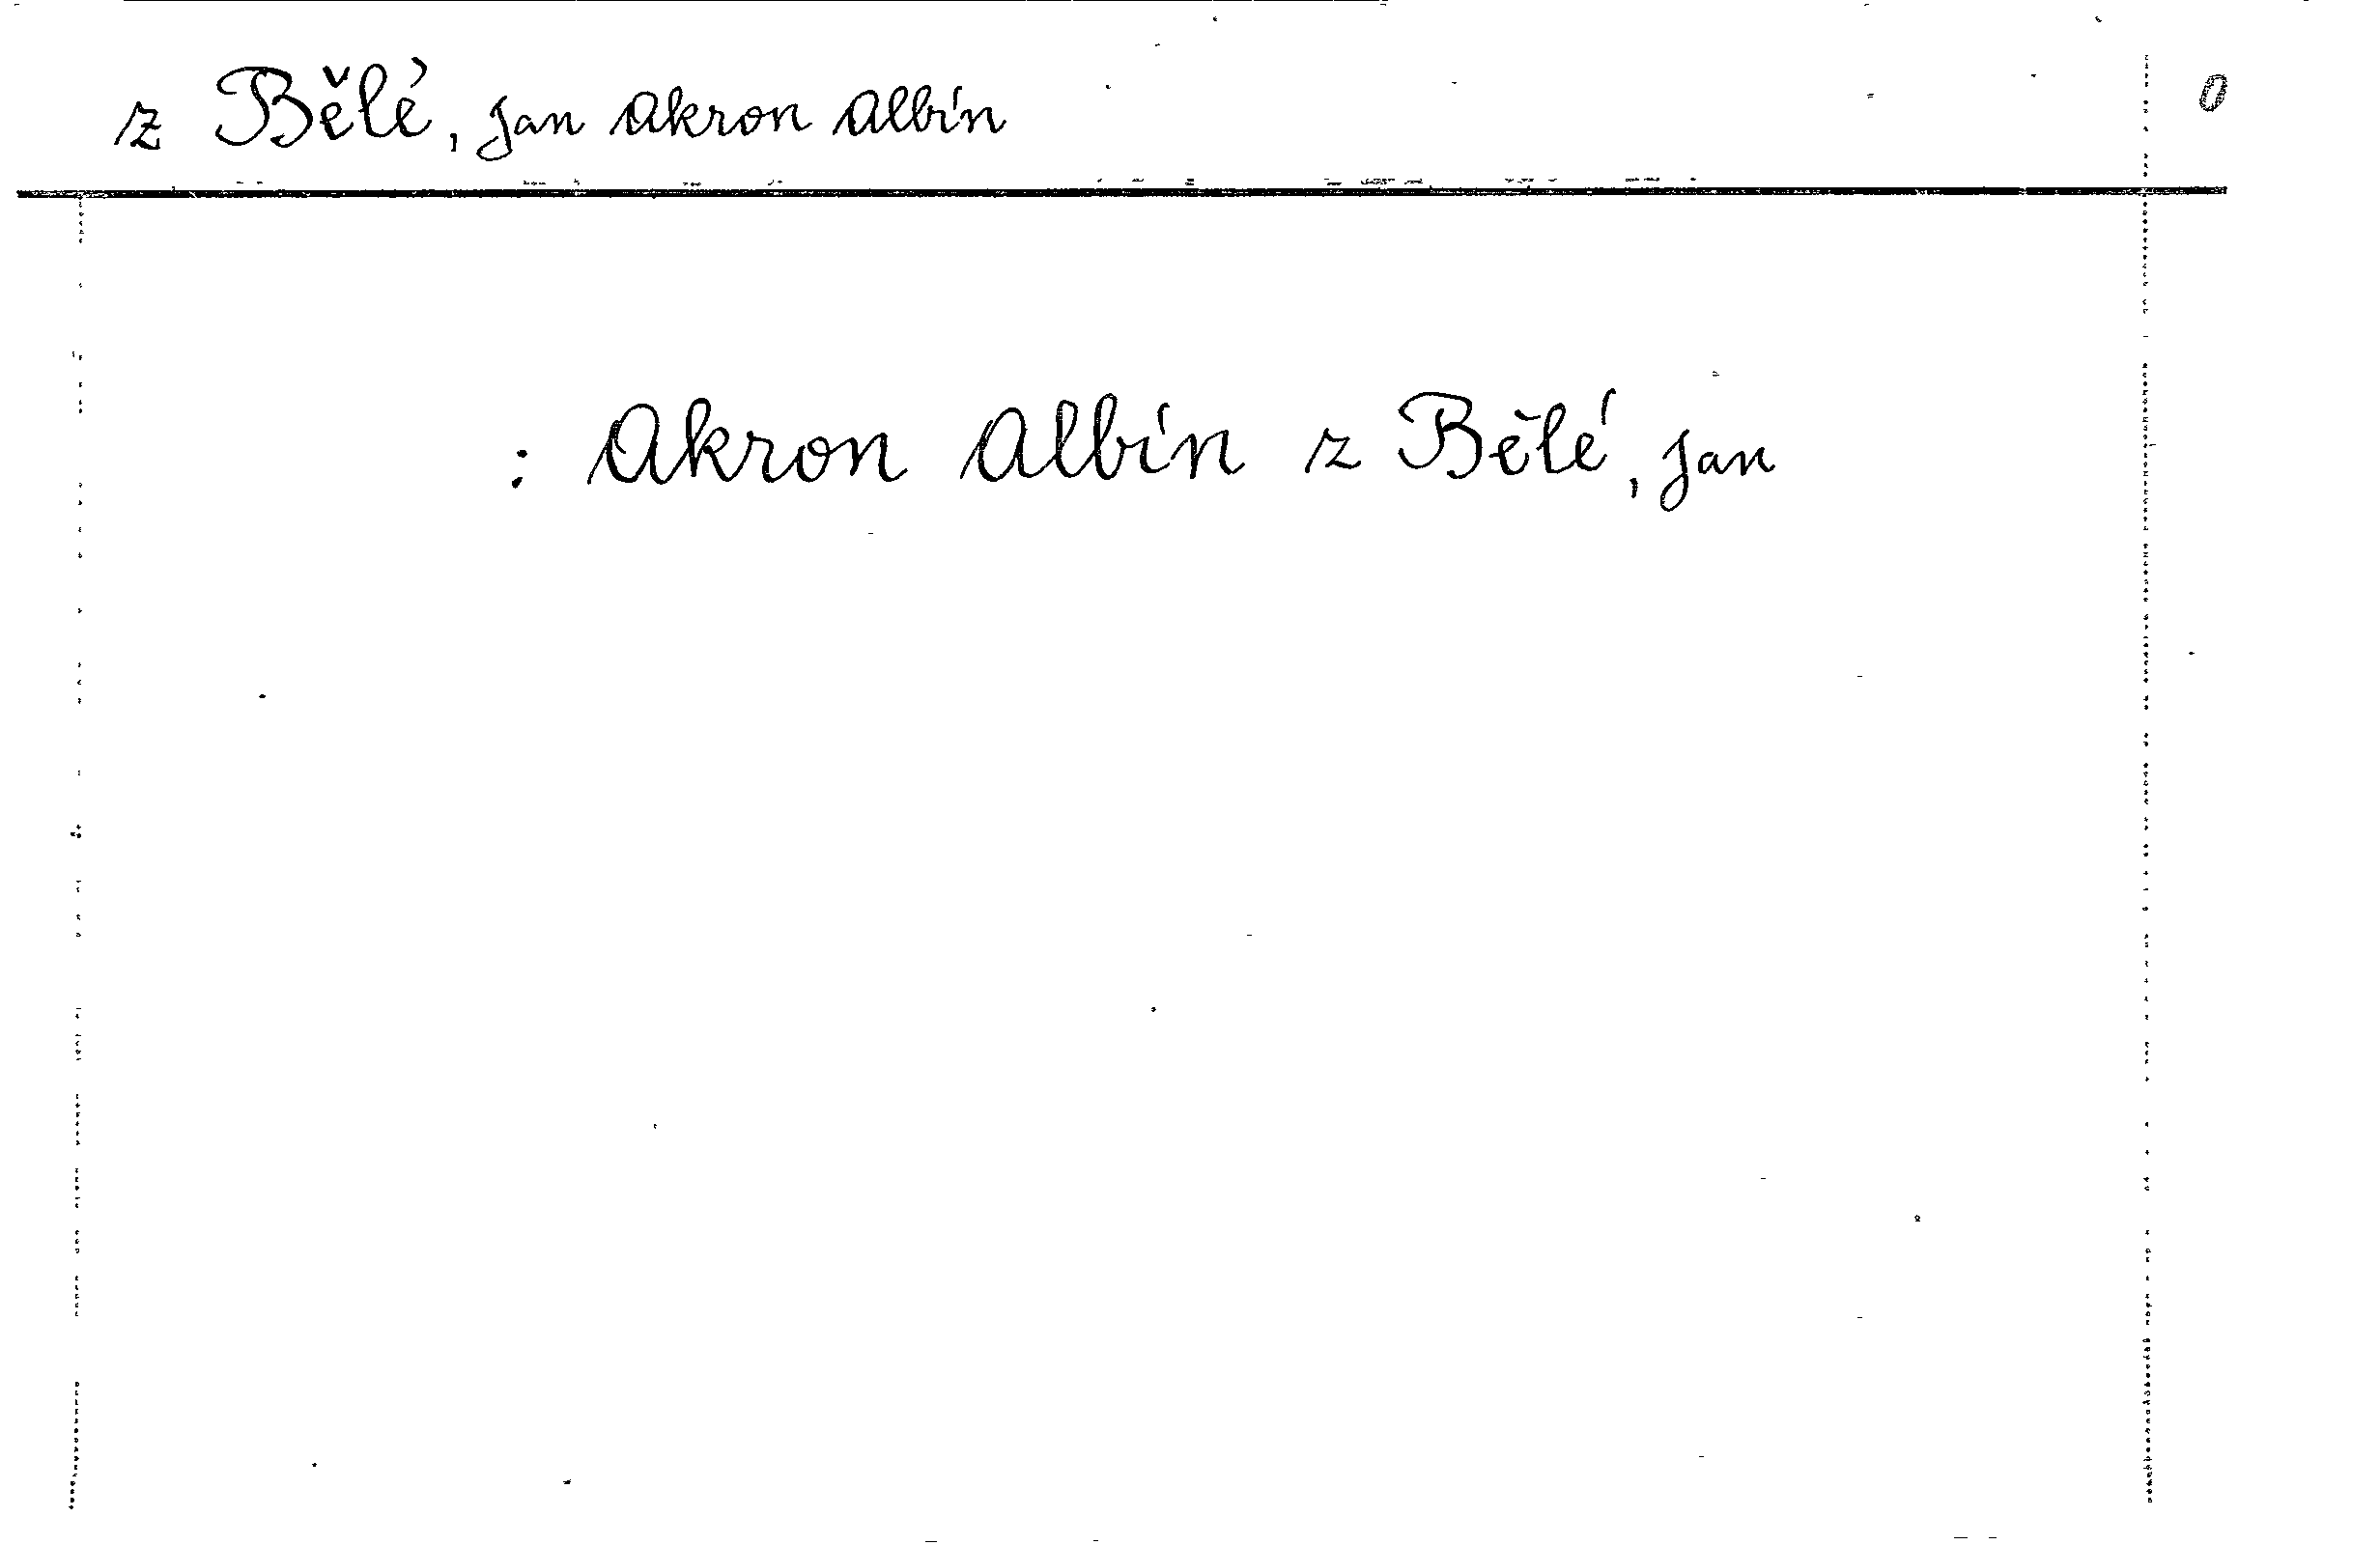 z Bělé, Jan Akron Albín
0
: Akron Albín z Bělé, Jan